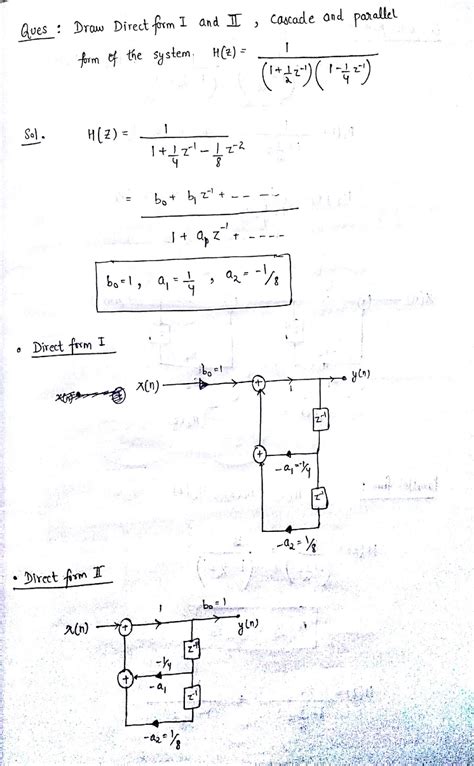 Ques : Draw Direct form I and II , Cascade and parallel
form of the system. H(z) = 1 / (1+1/2 z⁻¹)(1-1/4 z⁻¹)
Sol. H(z) = 1 / 1+1/4 z⁻¹ - 1/8 z⁻²
= b₀ + b₁ z⁻¹ + - - - - / 1 + aₚ z⁻¹ + - - - -
b₀=1, a₁ = 1/4 , a₂ = -1/8
• Direct form I
b₀=1
x(n)
+
1
y(n)
z⁻¹
+
-a₁=-1/4
z⁻¹
-a₂ = 1/8
• Direct form II
x(n)
+
1
b₀=1
y(n)
z⁻¹
+
-1/4
-a₁
z⁻¹
-a₂ = 1/8